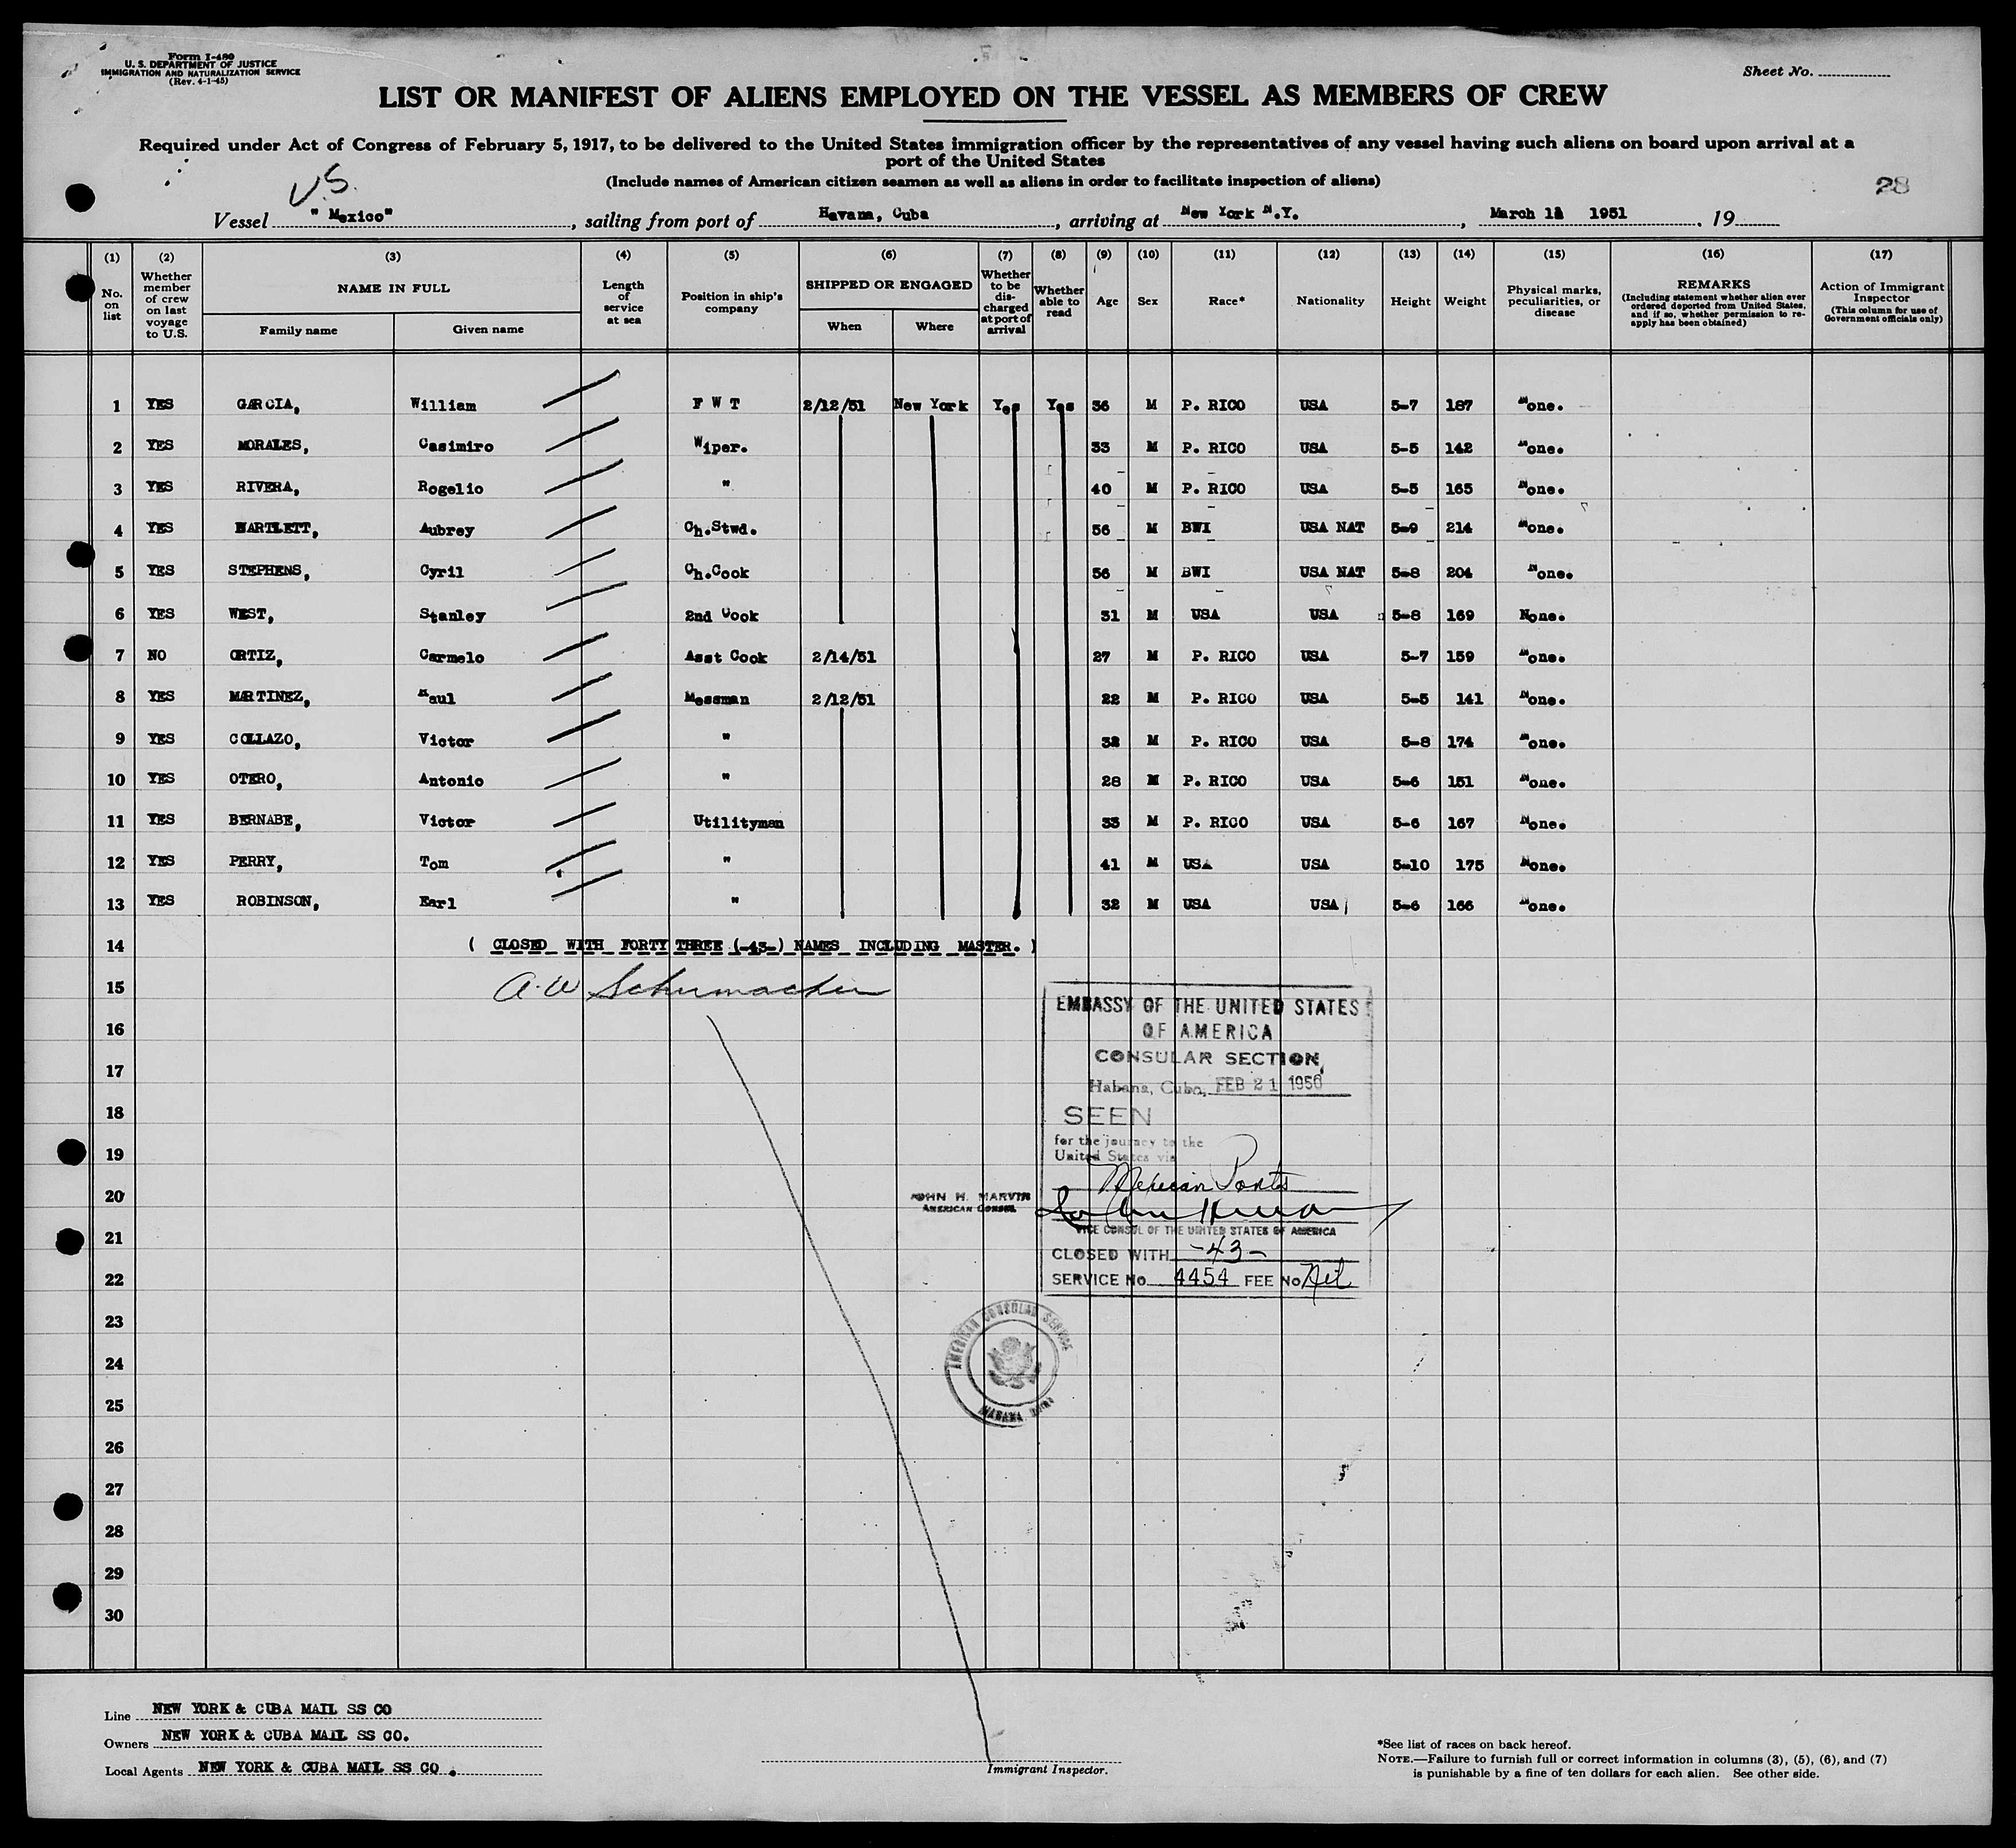 Form I-480
U. S. DEPARTMENT OF JUSTICE
IMMIGRATION AND NATURALIZATION SERVICE
(Rev. 4-1-45)
Sheet No.
LIST OR MANIFEST OF ALIENS EMPLOYED ON THE VESSEL AS MEMBERS OF CREW
Required under Act of Congress of February 5, 1917, to be delivered to the United States immigration officer by the representatives of any vessel having such aliens on board upon arrival at a
port of the United States
(Include names of American citizen seamen as well as aliens in order to facilitate inspection of aliens)
U.S.
28
Vessel "Mexico", sailing from port of Havana, Cuba, arriving at New York N.Y., March 1951, 19
(1) No. on list
(2) Whether member of crew on last voyage to U.S.
(3) NAME IN FULL Family name Given name
(4) Length of service at sea
(5) Position in ship's company
(6) SHIPPED OR ENGAGED When Where
(7) Whether to be discharged at port of arrival
(8) Whether able to read
(9) Age
(10) Sex
(11) Race*
(12) Nationality
(13) Height
(14) Weight
(15) Physical marks, peculiarities, or disease
(16) REMARKS (Including statement whether alien ever ordered deported from United States, and if so, whether permission to re-apply has been obtained)
(17) Action of Immigrant Inspector (This column for use of Government officials only)
1 YES GARCIA, William F W T 2/12/51 New York Yes Yes 36 M P. RICO USA 5-7 187 None.
2 YES MORALES, Casimiro Wiper. 33 M P. RICO USA 5-5 142 None.
3 YES RIVERA, Rogelio " 40 M P. RICO USA 5-5 165 None.
4 YES BARTLETT, Aubrey Ch.Stwd. 56 M BWI USA NAT 5-9 214 None.
5 YES STEPHENS, Cyril Ch.Cook 56 M BWI USA NAT 5-8 204 None.
6 YES WEST, Stanley 2nd Cook 31 M USA USA 5-8 169 None.
7 NO ORTIZ, Carmelo Asst Cook 2/14/51 27 M P. RICO USA 5-7 159 None.
8 YES MARTINEZ, Raul Messman 2/12/51 22 M P. RICO USA 5-5 141 None.
9 YES COLLAZO, Victor " 32 M P. RICO USA 5-8 174 None.
10 YES OTERO, Antonio " 28 M P. RICO USA 5-6 151 None.
11 YES BERNABE, Victor Utilityman 33 M P. RICO USA 5-6 167 None.
12 YES PERRY, Tom " 41 M USA USA 5-10 175 None.
13 YES ROBINSON, Earl " 32 M USA USA 5-6 166 None.
14 ( CLOSED WITH FORTY THREE (-43-) NAMES INCLUDING MASTER. )
15 A.W Schumacher
16
17
18
19
20
21
22
23
24
25
26
27
28
29
30
EMBASSY OF THE UNITED STATES
OF AMERICA
CONSULAR SECTION,
Habana, Cuba, FEB 21 1950
SEEN
for the journey to the
United States via
Mexican Ports
JOHN H. MARVIN
AMERICAN CONSUL
VICE CONSUL OF THE UNITED STATES OF AMERICA
CLOSED WITH -43-
SERVICE No. 4454 FEE No Nil
AMERICAN CONSULAR SERVICE
HABANA, CUBA
Line NEW YORK & CUBA MAIL SS CO
Owners NEW YORK & CUBA MAIL SS CO.
Local Agents NEW YORK & CUBA MAIL SS CO .
Immigrant Inspector.
*See list of races on back hereof.
NOTE.—Failure to furnish full or correct information in columns (3), (5), (6), and (7)
is punishable by a fine of ten dollars for each alien. See other side.